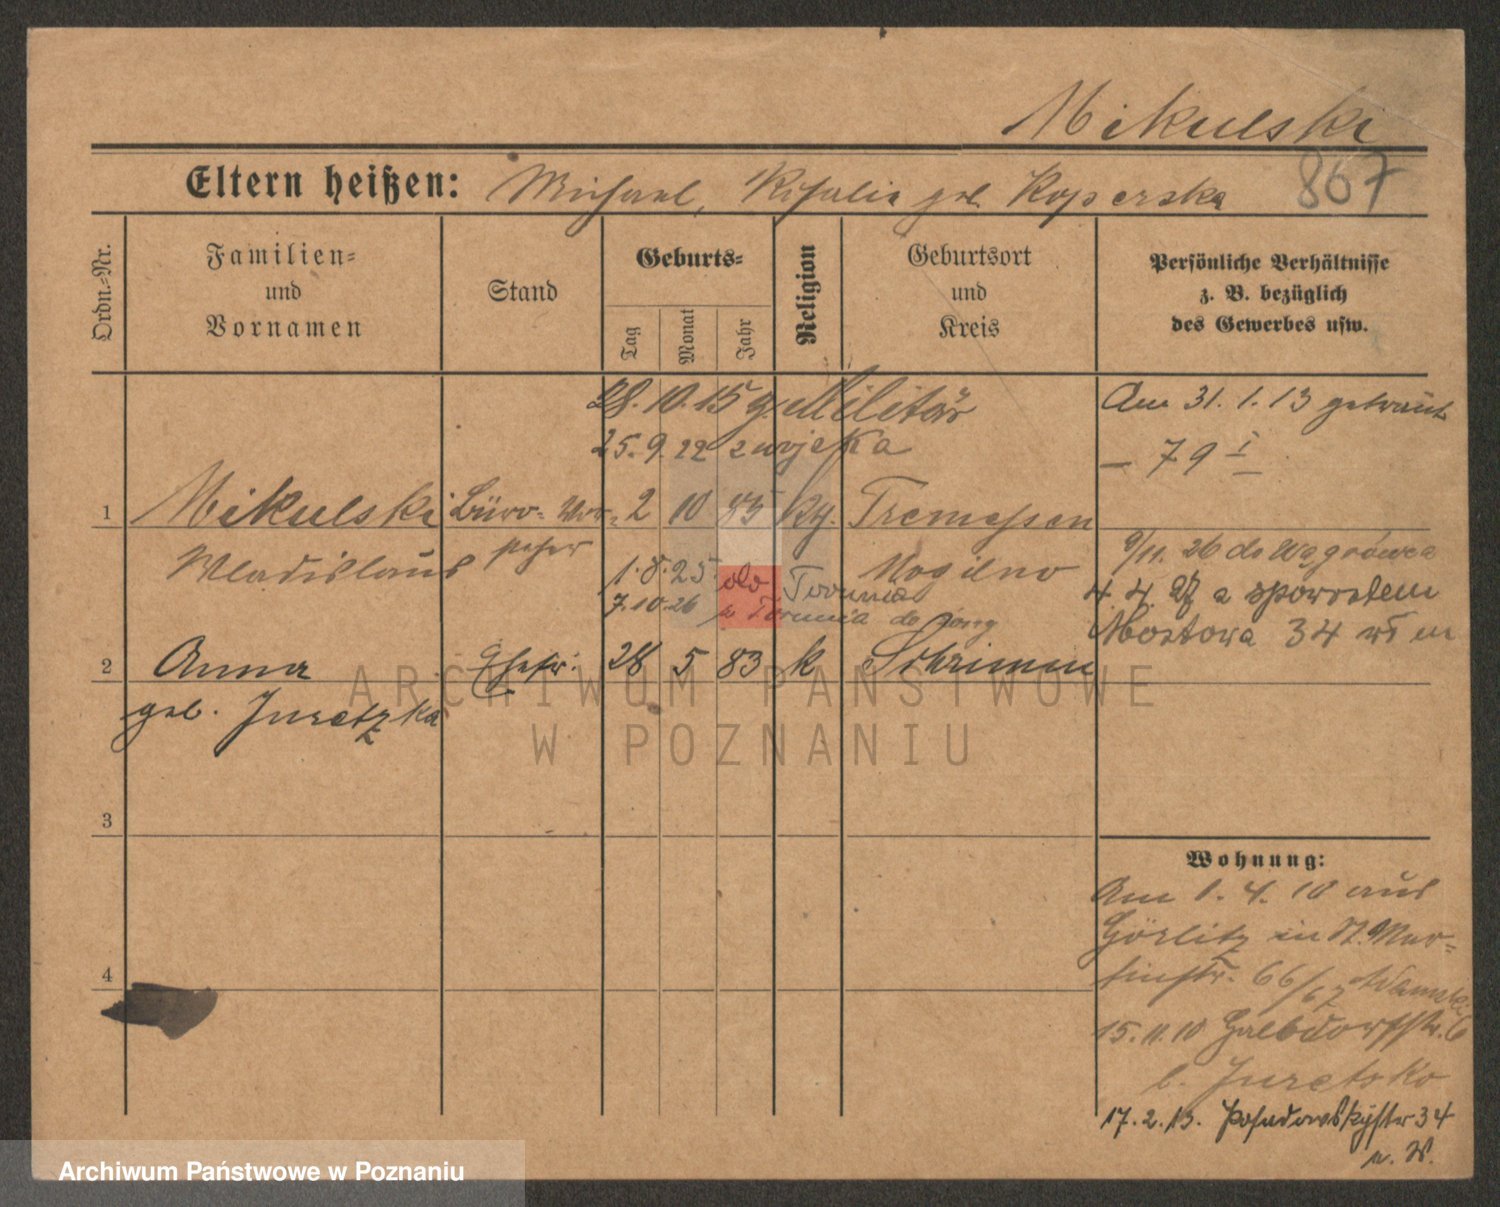 Mikulski
867
Eltern heißen: Michael, Rosalia geb. Koperska
Ordn.=Nr.
Familien=
und
Vornamen
Stand
Geburts=
Tag
Monat
Jahr
Religion
Geburtsort
und
Kreis
Persönliche Verhältnisse
z. B. bezüglich
des Gewerbes usw.
28.10.15 z. Militär
25.9.22 z wojska
Am 31.1.13 getraut
— 79 I
1 Mikulski Büro=Vor= 2 10 85 k. Tremessen
Wladislaus steher Mogilno
1.8.25 do Torunia
7.10.26 z Torunia do
9/11. 26 do Wągrówca
4. 4. 27 z powrotem
Mostowa 34 wł m
2 Anna Ehefr. 28 5 83 k Schrimm
geb. Juretzka
3
4
Wohnung:
Am 1.4.10 aus
Görlitz in St. Mar=
tinstr. 66/67 Adamski
15.11.10 Halbdorfstr. 6
b. Juretzko
17.2.13. Posadowskystr 34
ARCHIWUM PAŃSTWOWE
W POZNANIU
Archiwum Państwowe w Poznaniu